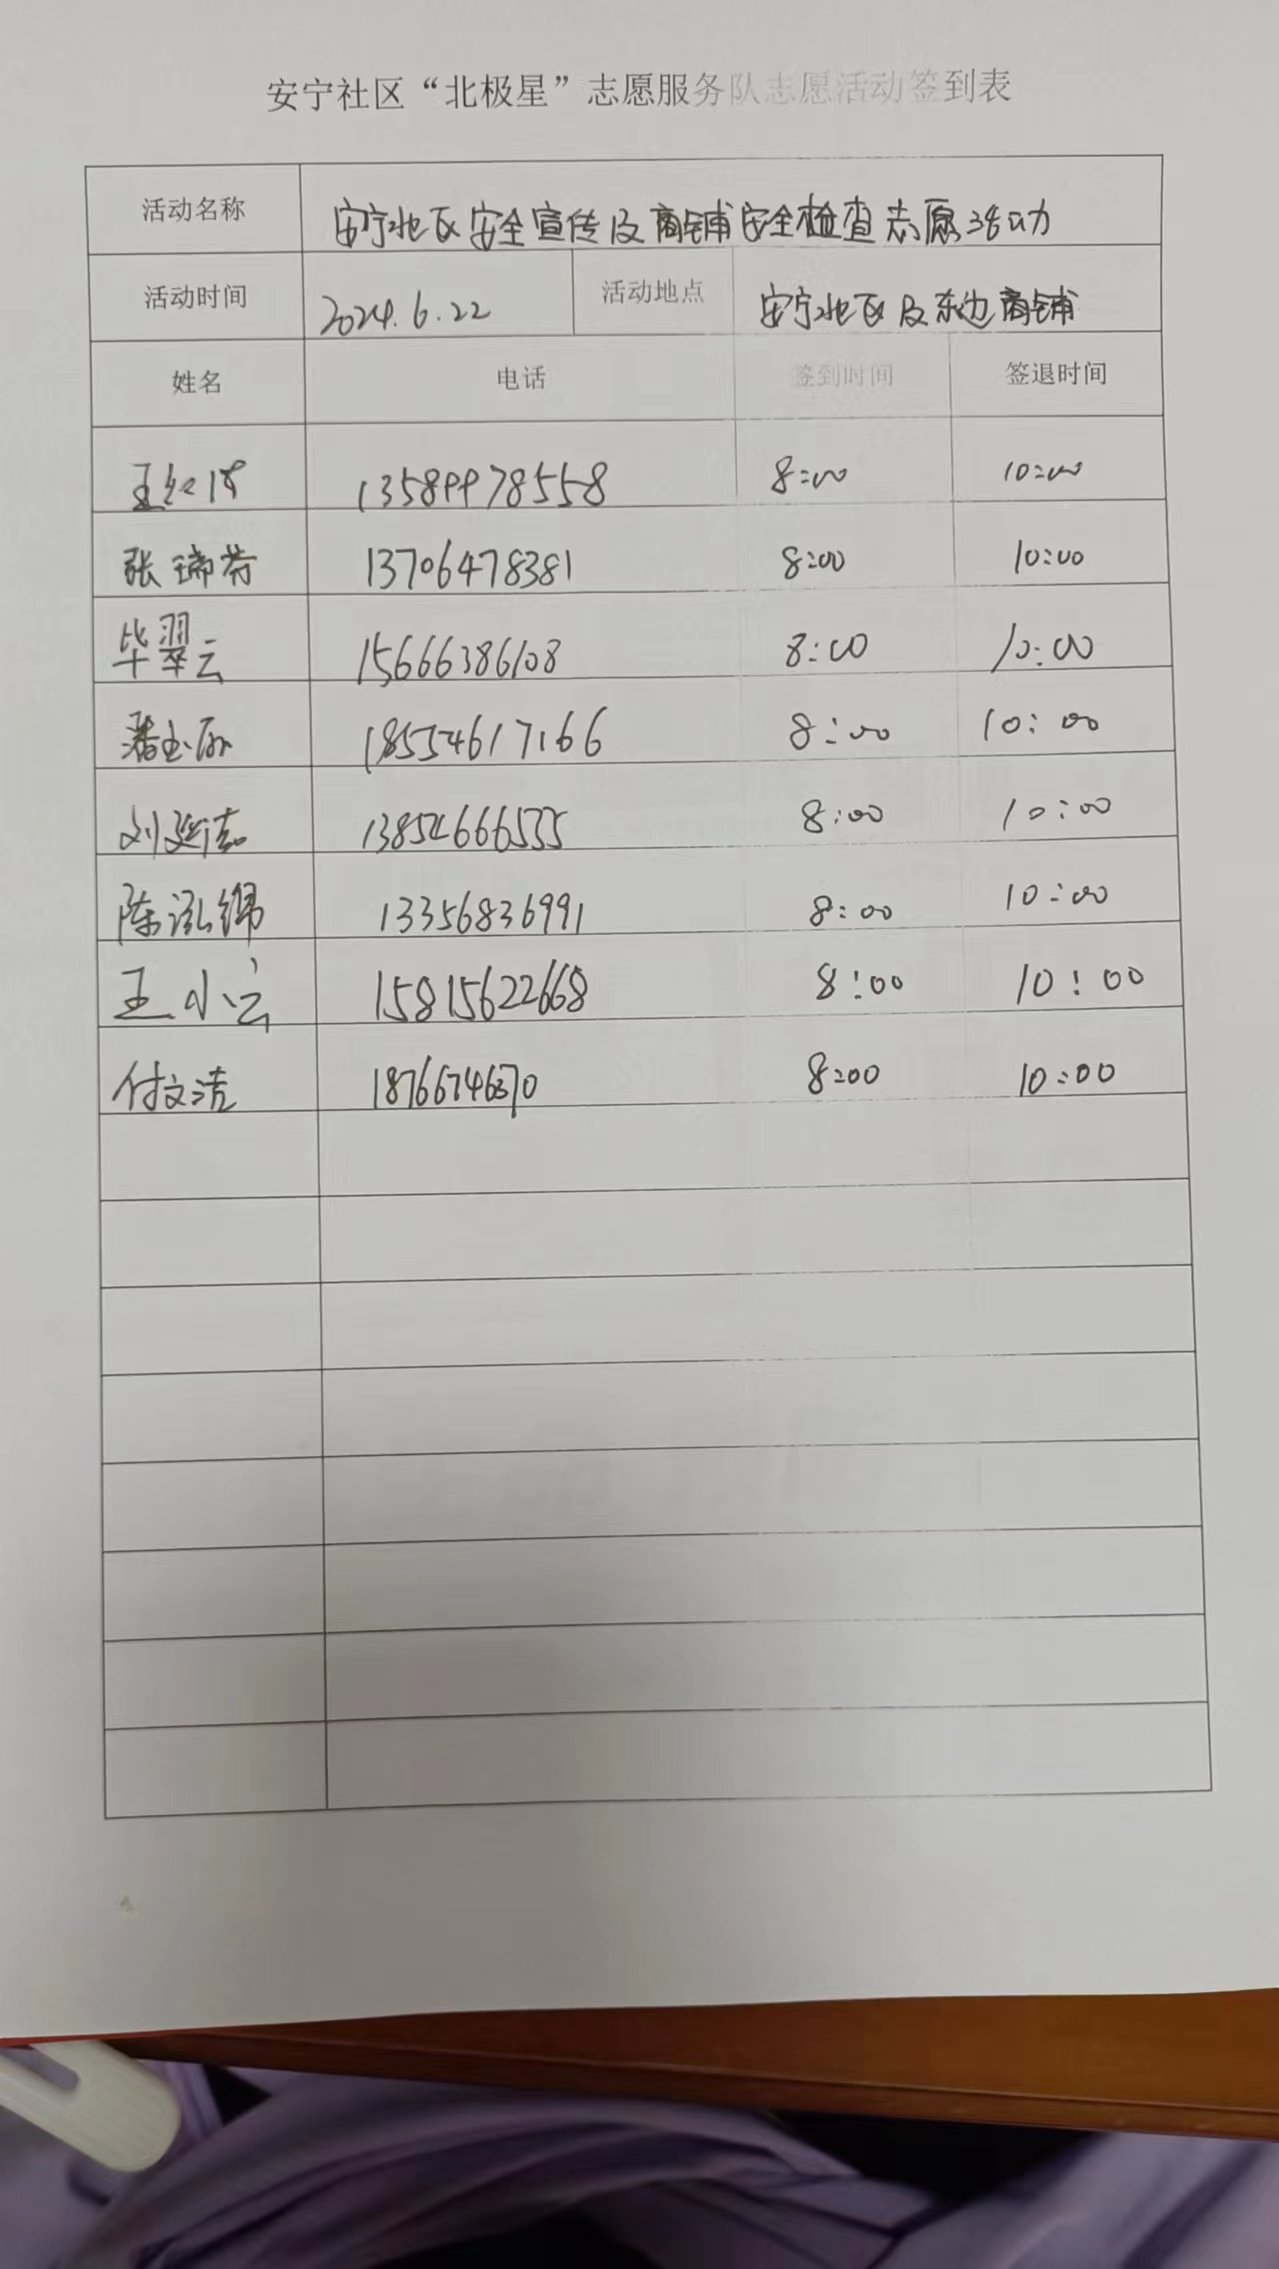 安宁社区“北极星”志愿服务队志愿活动签到表
活动名称 安宁北区安全宣传及商铺安全检查志愿活动
活动时间 2024.6.22 活动地点 安宁北区及东边商铺
姓名 电话 签到时间 签退时间
王红 13589978558 8:00 10:00
张瑞芳 13706478381 8:00 10:00
毕翠云 15666386108 8:00 10:00
潘玉 18554617166 8:00 10:00
刘延志 13854666535 8:00 10:00
陈泓锦 13356836991 8:00 10:00
王小云 15815622668 8:00 10:00
付文洁 8:00 10:00